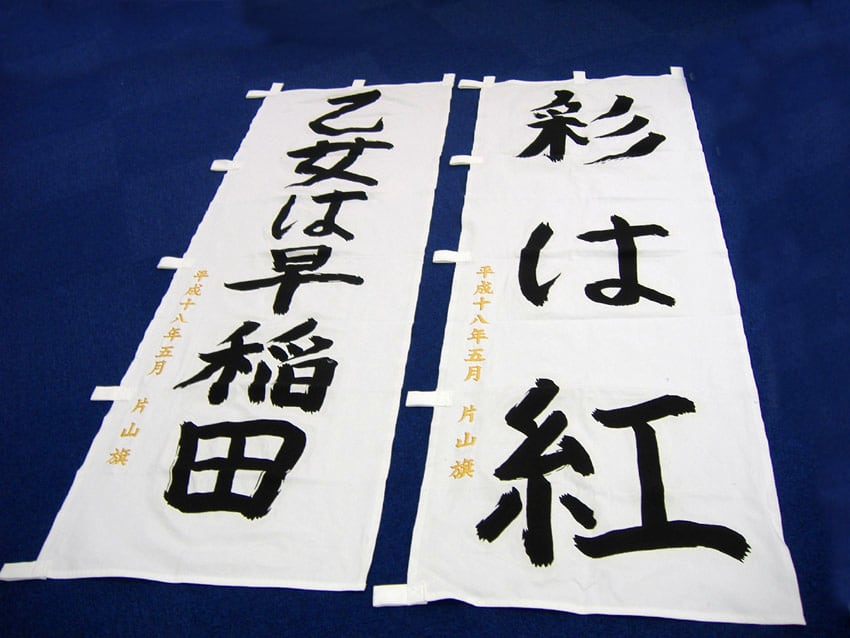 彩は紅
平成十八年五月 片山旗
乙女は早稲田
平成十八年五月 片山旗